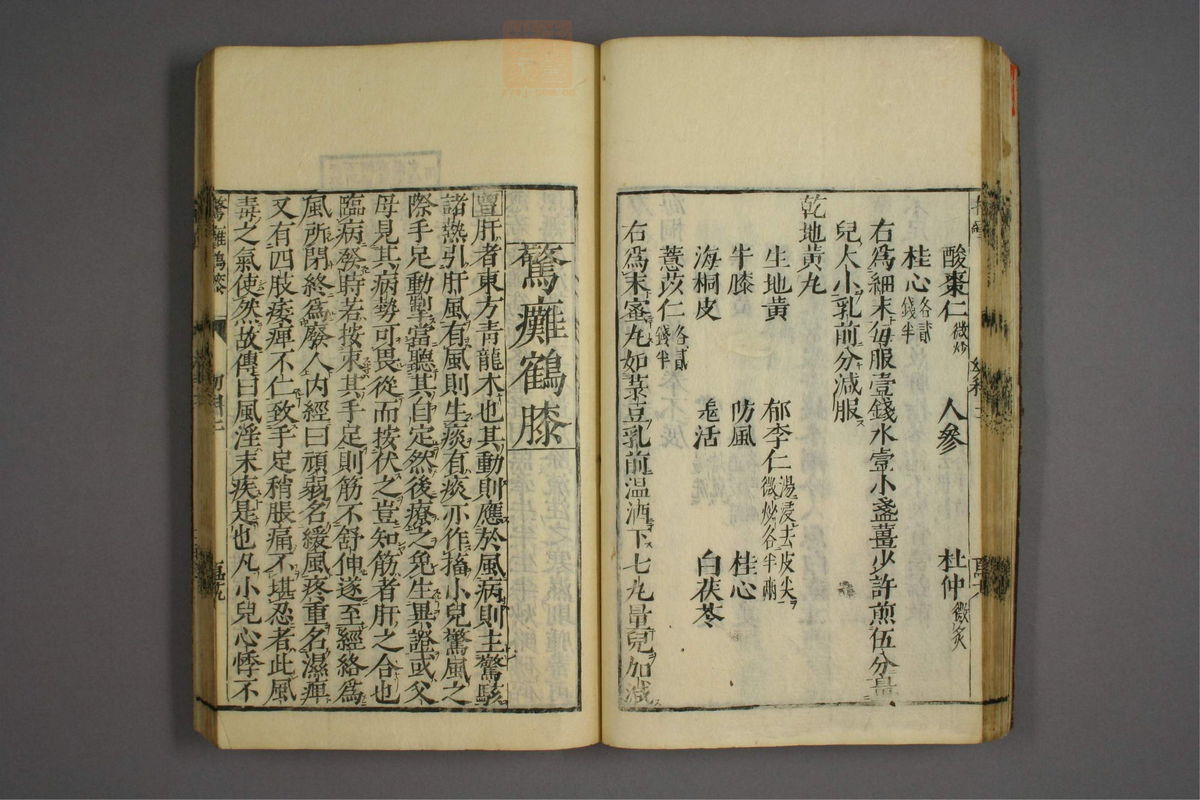 酸棗仁微炒　人參　杜仲微炙
桂心各貳錢半
右爲細末每服壹錢水壹小盞薑少許煎伍分量
兒大小乳前分減服
乾地黄丸
生地黄　郁李仁湯浸去皮尖微炒各半兩
牛膝　防風　桂心
海桐皮　羌活　白茯苓
薏苡仁各貳錢半
右爲末蜜丸如菉豆乳前温酒下七丸量兒加減
驚癱鶴膝
肝者東方青龍木也其動則應於風病則主驚駭
諸熱引肝風有風則生痰有痰亦作搐小兒驚風之
際手足動掣當聽其自定然後療之免生異證或父
母見其病勢可畏從而按伏之豈知筋者肝之合也
臨病發時若按束其手足則筋不舒伸遂至經絡爲
風所閉終爲廢人内經曰頑弱名緩風疼重名濕痺
又有四肢痿痺不仁致手足稍脹痛不堪忍者此風
毒之氣使然故傳曰風淫末疾是也凡小兒心悸不
驚癱鶴膝